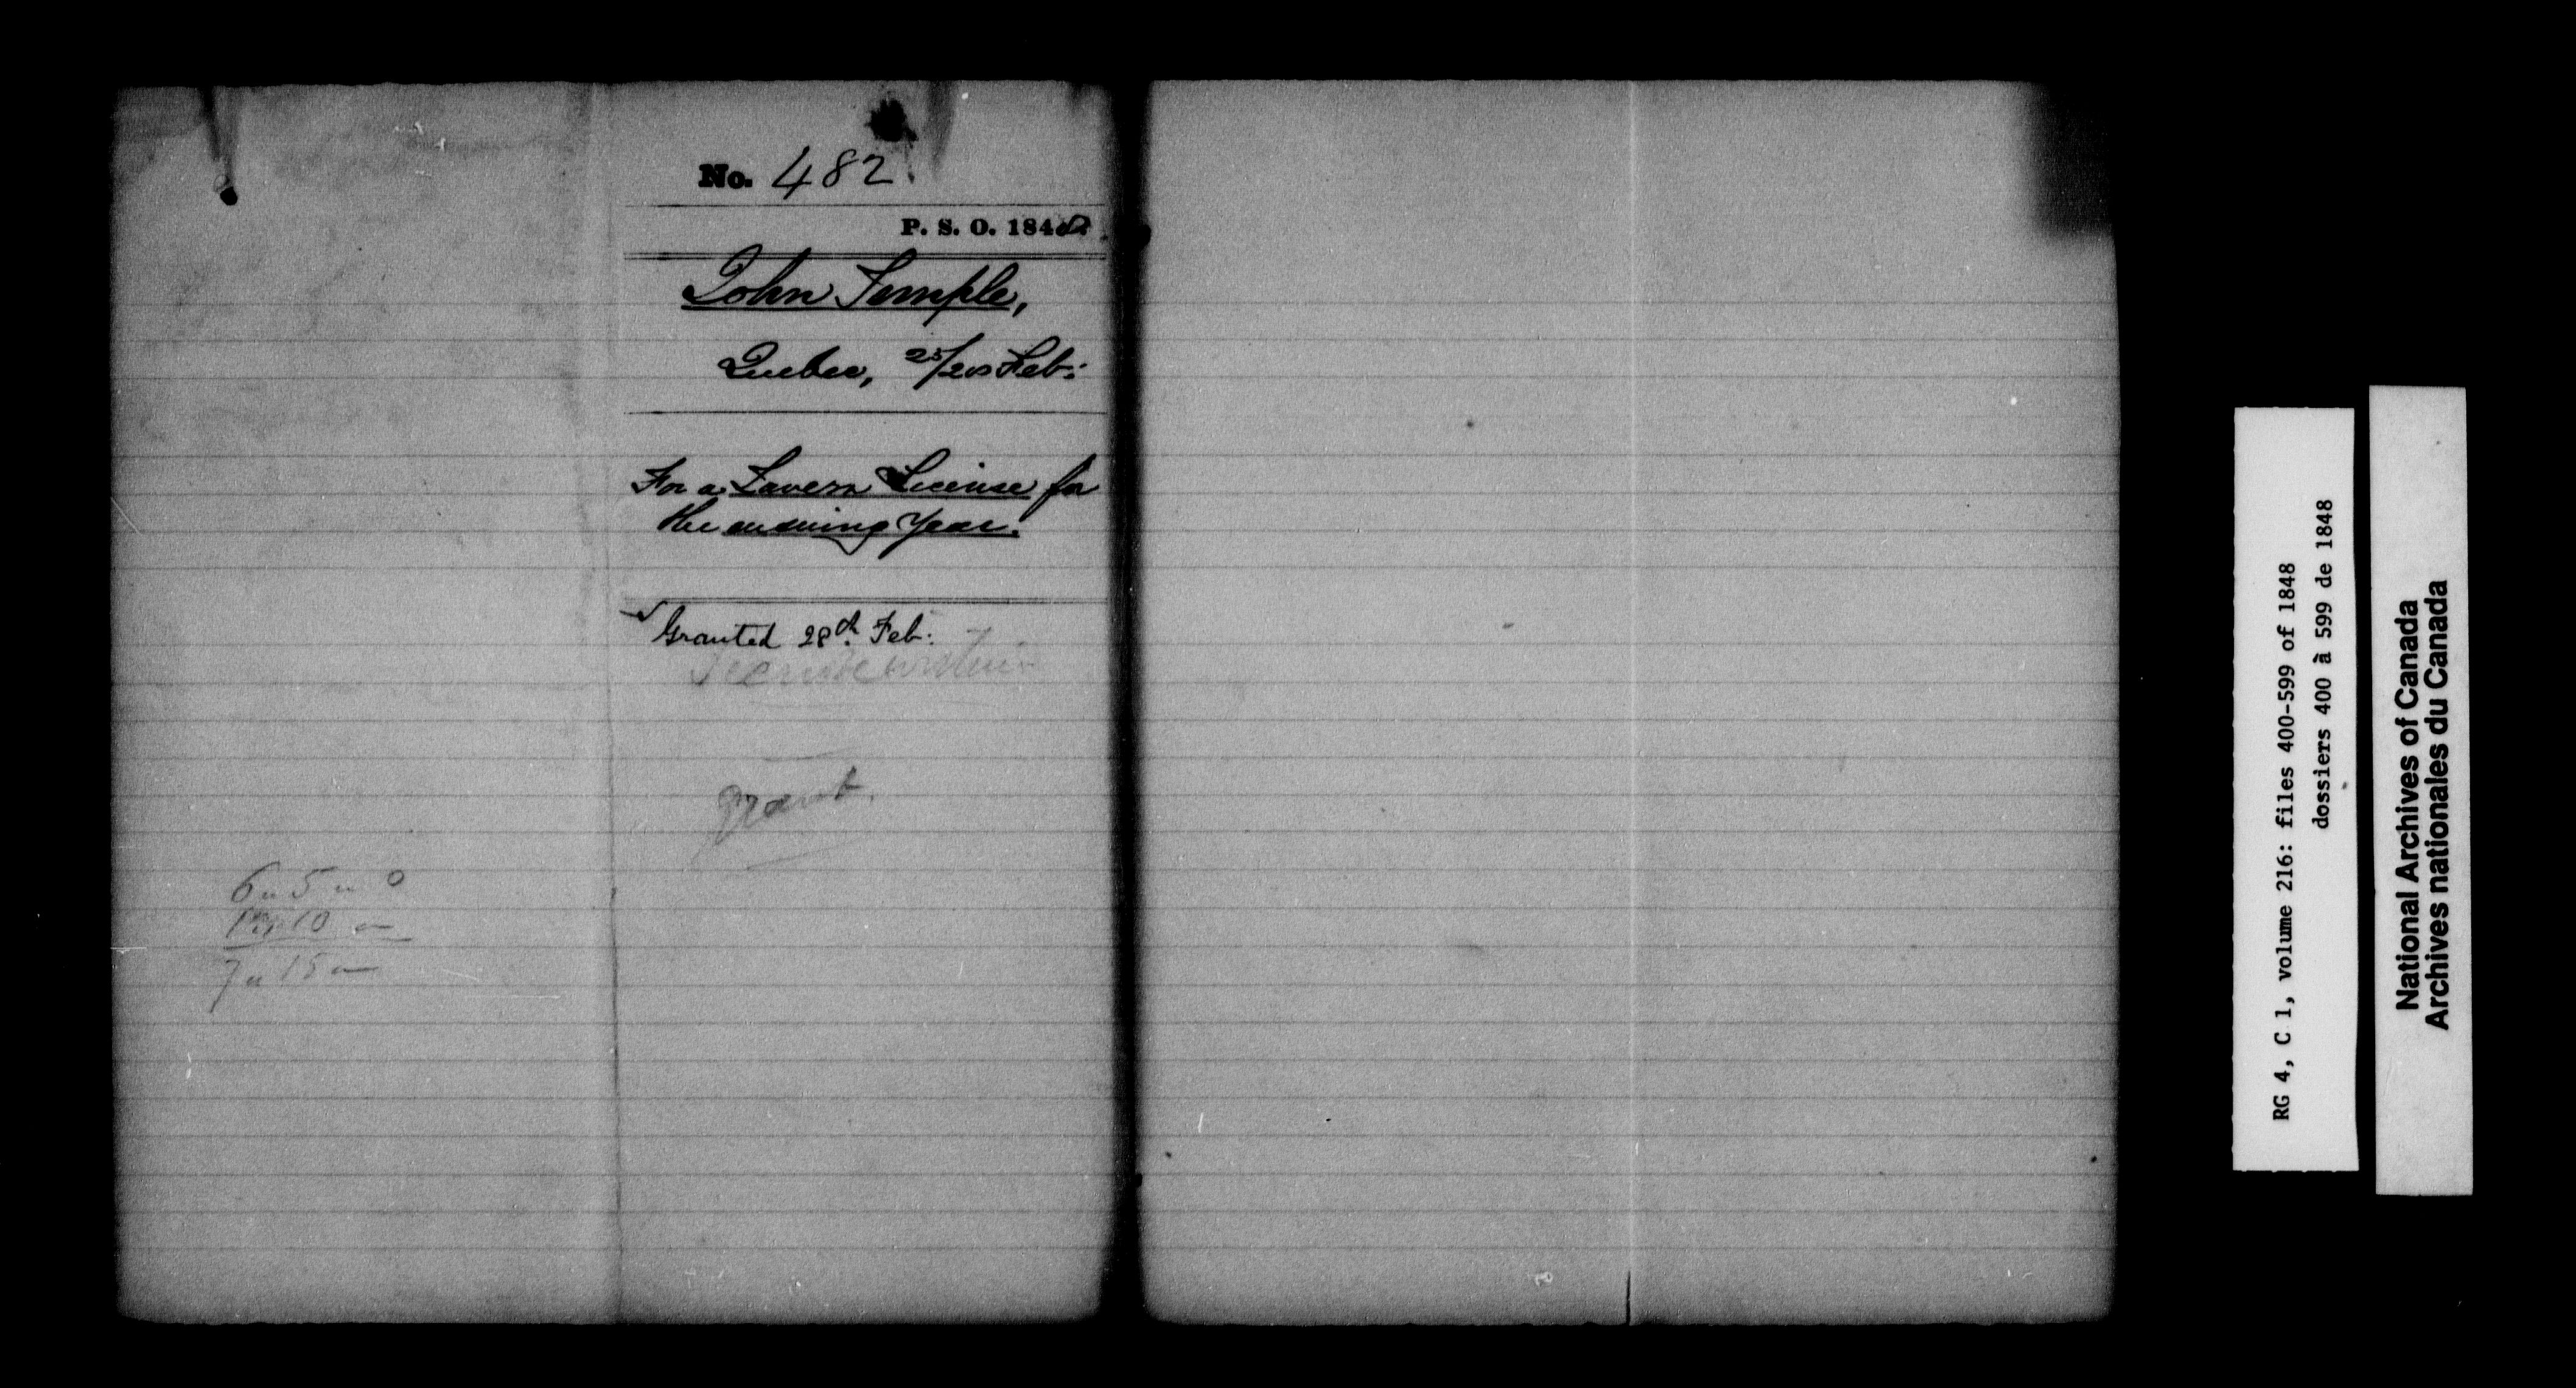 No. 482.
P. S. O. 1848.
John Temple,
Quebec, 25/28 Feb:
For a Tavern License for
the ensuing Year.
Granted 28th. Feb:
Grant.
6 " 5 " 0
1 " 10 "
7 " 15 "
RG 4, C 1, volume 216: files 400-599 of 1848
dossiers 400 à 599 de 1848
National Archives of Canada
Archives nationales du Canada